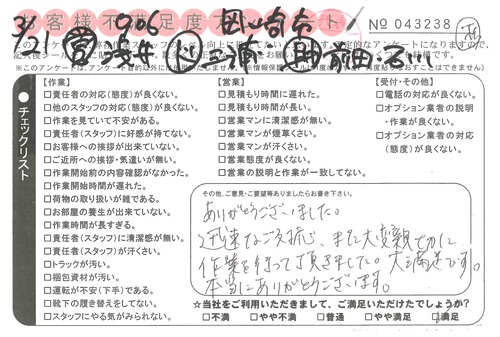 お客様不満足度アンケート
№ 043238
3/21
906
チェックリスト
【作業】
□責任者の対応(態度)が良くない。
□他のスタッフの対応(態度)が良くない。
□作業を見ていて不安がある。
□責任者(スタッフ)に好感が持てない。
□お客様への挨拶が出来ていない。
□ご近所への挨拶・気遣いが無い。
□作業開始前の内容確認がなかった。
□作業開始時間が遅れた。
□荷物の取り扱いが雑である。
□お部屋の養生が出来ていない。
□作業時間が長すぎる。
□責任者(スタッフ)に清潔感が無い。
□責任者(スタッフ)が汗くさい。
□トラックが汚い。
□梱包資材が汚い。
□運転が不安(下手)である。
□靴下の履き替えをしてない。
□スタッフにやる気がみられない。
【営業】
□見積もり時間に遅れた。
□見積もり時間が長い。
□営業マンに清潔感が無い。
□営業マンが煙草くさい。
□営業マンが汗くさい。
□営業態度が良くない。
□営業の説明と作業が一致してない。
【受付・その他】
□電話の対応が良くない。
□オプション業者の説明
・作業が良くない。
□オプション業者の対応
(態度)が良くない。
その他、ご意見・ご要望等ありましたらお書き下さい。
ありがとうございました。
迅速なご対応、また大変親切に
作業を行って頂きました。大満足です。
本当にありがとうございます。
☆当社をご利用いただきまして、ご満足いただけたでしょうか?
□不満 □やや不満 □普通 □やや満足 □満足